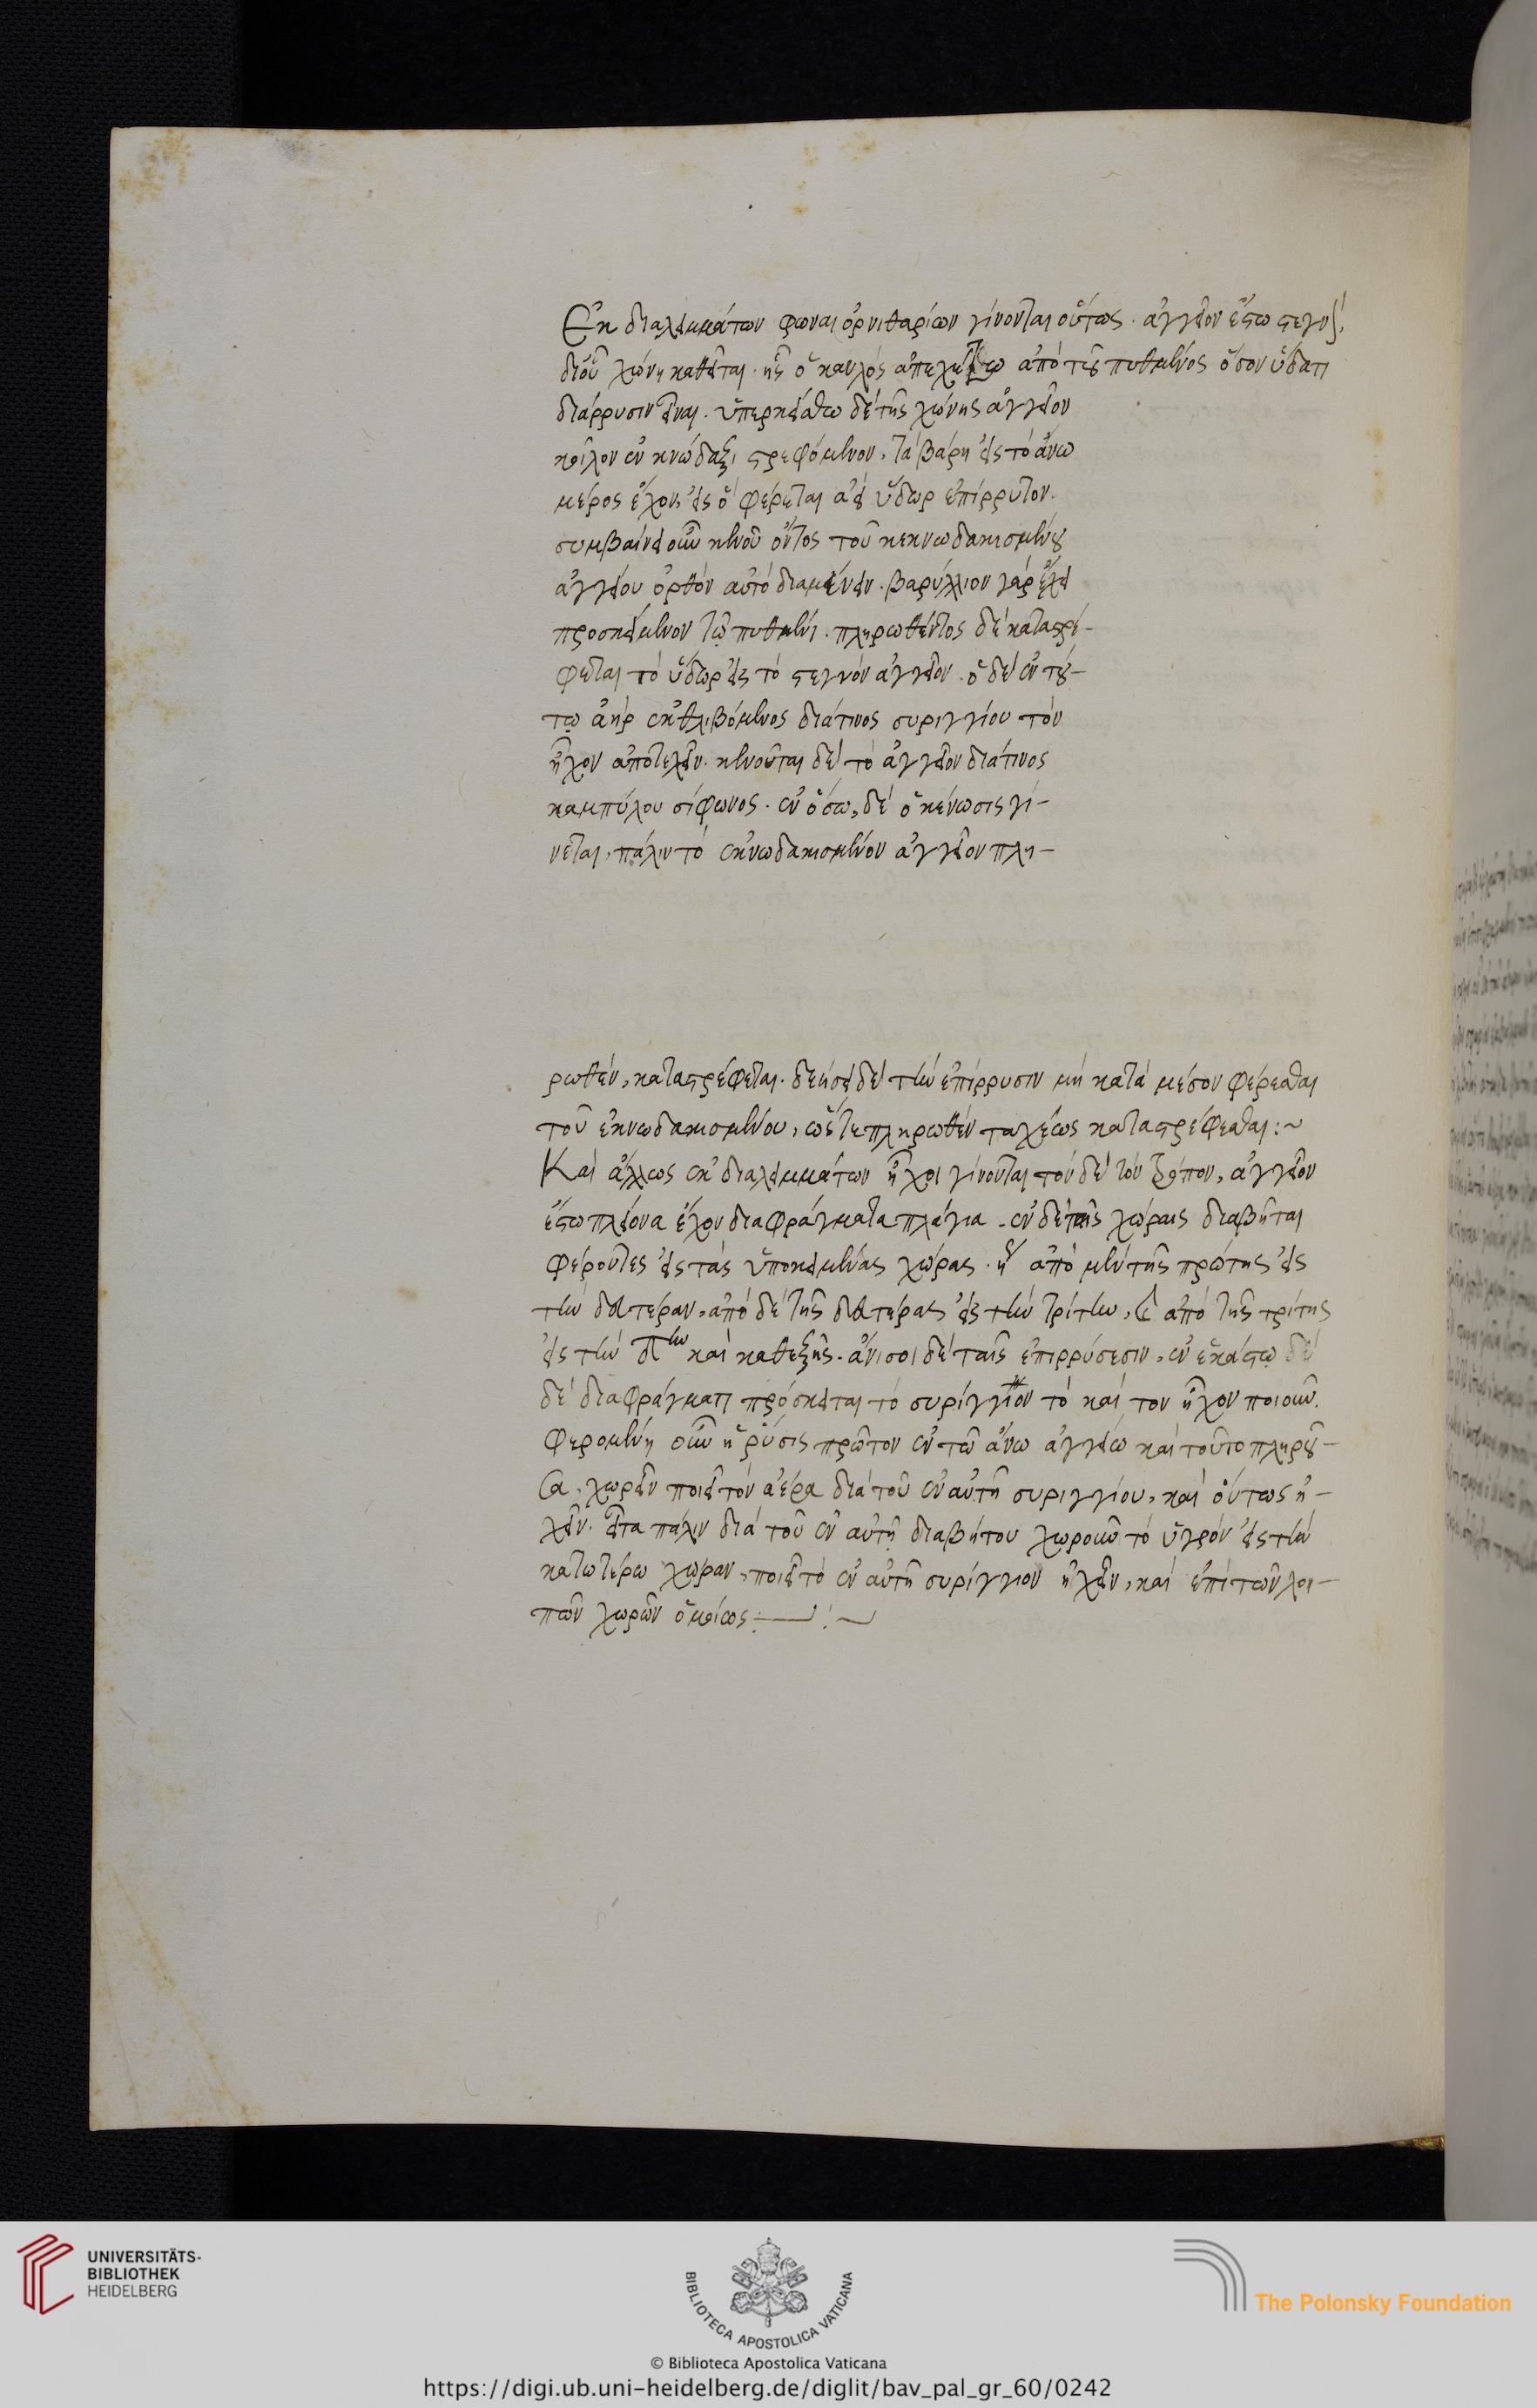 Ἐκ διαλειμμάτων φωναὶ ὀρνιθαρίων γίνονται οὕτως. ἀγγεῖον ἔστω στεγνὸν,
δι οὗ χώνη καθεῖται. ἧς ὁ καυλὸς ἀπεχέτω ἀπὸ τοῦ πυθμένος ὅσον ὕδατι
διάρρυσιν εἶναι. ὑπερκείσθω δὲ τῆς χώνης ἀγγεῖον
κοῖλον ἐν κνώδαξι στρεφόμενον, τὰ βάρη εἰς τὸ ἄνω
μέρος ἔχον, εἰς ὃ φέρεται ἀεὶ ὕδωρ ἐπίρρυτον.
συμβαίνει οὖν κενοῦ ὄντος τοῦ κεκνωδακισμένου
ἀγγείου ὀρθὸν αὐτὸ διαμένειν. βαρύλλιον γὰρ ἔχει
προσκείμενον τῷ πυθμένι. πληρωθέντος δὲ καταστρέ-
φεται τὸ ὕδωρ εἰς τὸ στεγνὸν ἀγγεῖον. ὁ δὲ ἐν τού-
τῳ ἀὴρ ἐκθλιβόμενος διά τινος συριγγίου τὸν
ἦχον ἀποτελεῖν. κενοῦται δὲ τὸ ἀγγεῖον διά τινος
καμπύλου σίφωνος. ἐν ὅσῳ, δὲ ὁ κένωσις γί-
νεται, πάλιν τὸ ἐκνωδακισμένον ἀγγεῖον πλη-
ρωθὲν, καταστρέφεται. δεήσει δὲ τὴν ἐπίρρυσιν μὴ κατὰ μέσον φέρεσθαι
τοῦ ἐκνωδακισμένου, ὥστε πληρωθὲν ταχέως καταστρέφεσθαι:~
Καὶ ἄλλως ἐκ διαλειμμάτων ἦχοι γίνονται τὸν δὲ τὸν τρόπον, ἀγγεῖον
ἔστω πλείονα ἔχον διαφράγματα πλάγια. ἐν δὲ ταῖς χώραις διαβῆται
φέροντες εἰς τὰς ὑποκειμένας χώρας. ἡ ἀπὸ μὲν τῆς πρώτης εἰς
τὴν δευτέραν, ἀπὸ δὲ τῆς δευτέρας εἰς τὴν τρίτην, καὶ ἀπὸ τῆς τρίτης
εἰς τὴν δτην καὶ καθεξῆς. ἄνισοι δὲ ταῖς ἐπιρρύσεσιν, ἐν ἑκάστῳ δὲ
δὲ διαφράγματι πρόσκειται τὸ συρίγγιον τὸ καὶ τον ἦχον ποιοῦν.
φερομένη οὖν ἡ ῥύσις πρῶτον ἐν τῷ ἄνω ἀγγείῳ καὶ τοῦτο πληροῦ-
σα, χωρεῖν ποιεῖ τὸν ἀέρα διὰ τοῦ ἐν αὐτῇ συριγγίου, καὶ οὕτως ἠ-
χεῖν. εἶτα πάλιν διὰ τοῦ ἐν αὐτῇ διαβήτου χωροῦν τὸ ὑγρὸν εἰς τὴν
κατωτέρω χώραν, ποιεῖ τὸ ἐν αὐτῇ συρίγγιον ἠχεῖν, καὶ ἐπὶ τῶν λοι-
πῶν χωρῶν ὁμοίως:—:~
UNIVERSITÄTS-
BIBLIOTHEK
HEIDELBERG
BIBLIOTECA APOSTOLICA VATICANA
The Polonsky Foundation
© Biblioteca Apostolica Vaticana
https://digi.ub.uni-heidelberg.de/diglit/bav_pal_gr_60/0242